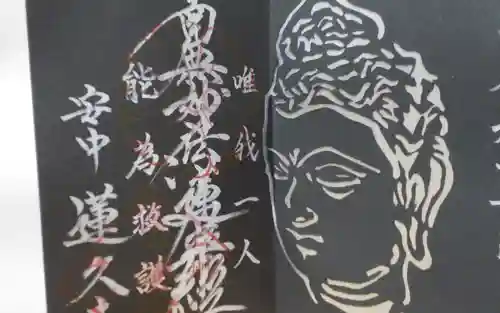 唯我一人
南無妙法蓮華経
能為救護
安中
蓮久寺